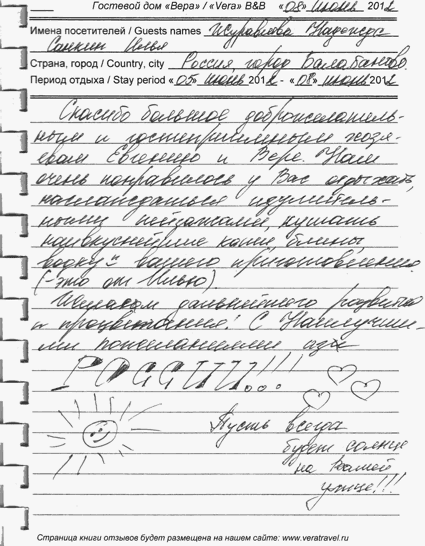 Гостевой дом «Вера» / «Vera» B&B «08» июнь 2012
Имена посетителей / Guests names Журавлева Надежда
Санкин Илья
Страна, город / Country, city Россия, город Балабаново
Период отдыха / Stay period «05» июнь 2012 - «08» июнь 2012
Спасибо большое доброжелатель-
ным и гостеприимным хозя-
евам Евгению и Вере. Нам
очень понравилось у Вас отдыхать,
наслаждаться изумитель-
ными пейзажами, кушать
наивкуснейшие каши, блины,
водку вашего приготовления
(-это от Ильи).
Желаем дальнейшего развития
и процветания! С Наилучши-
ми пожеланиями из
РОССИИ!...!!!
Пусть всегда
будет солнце
на Вашей
улице!!!
Страница книги отзывов будет размещена на нашем сайте: www.veratravel.ru